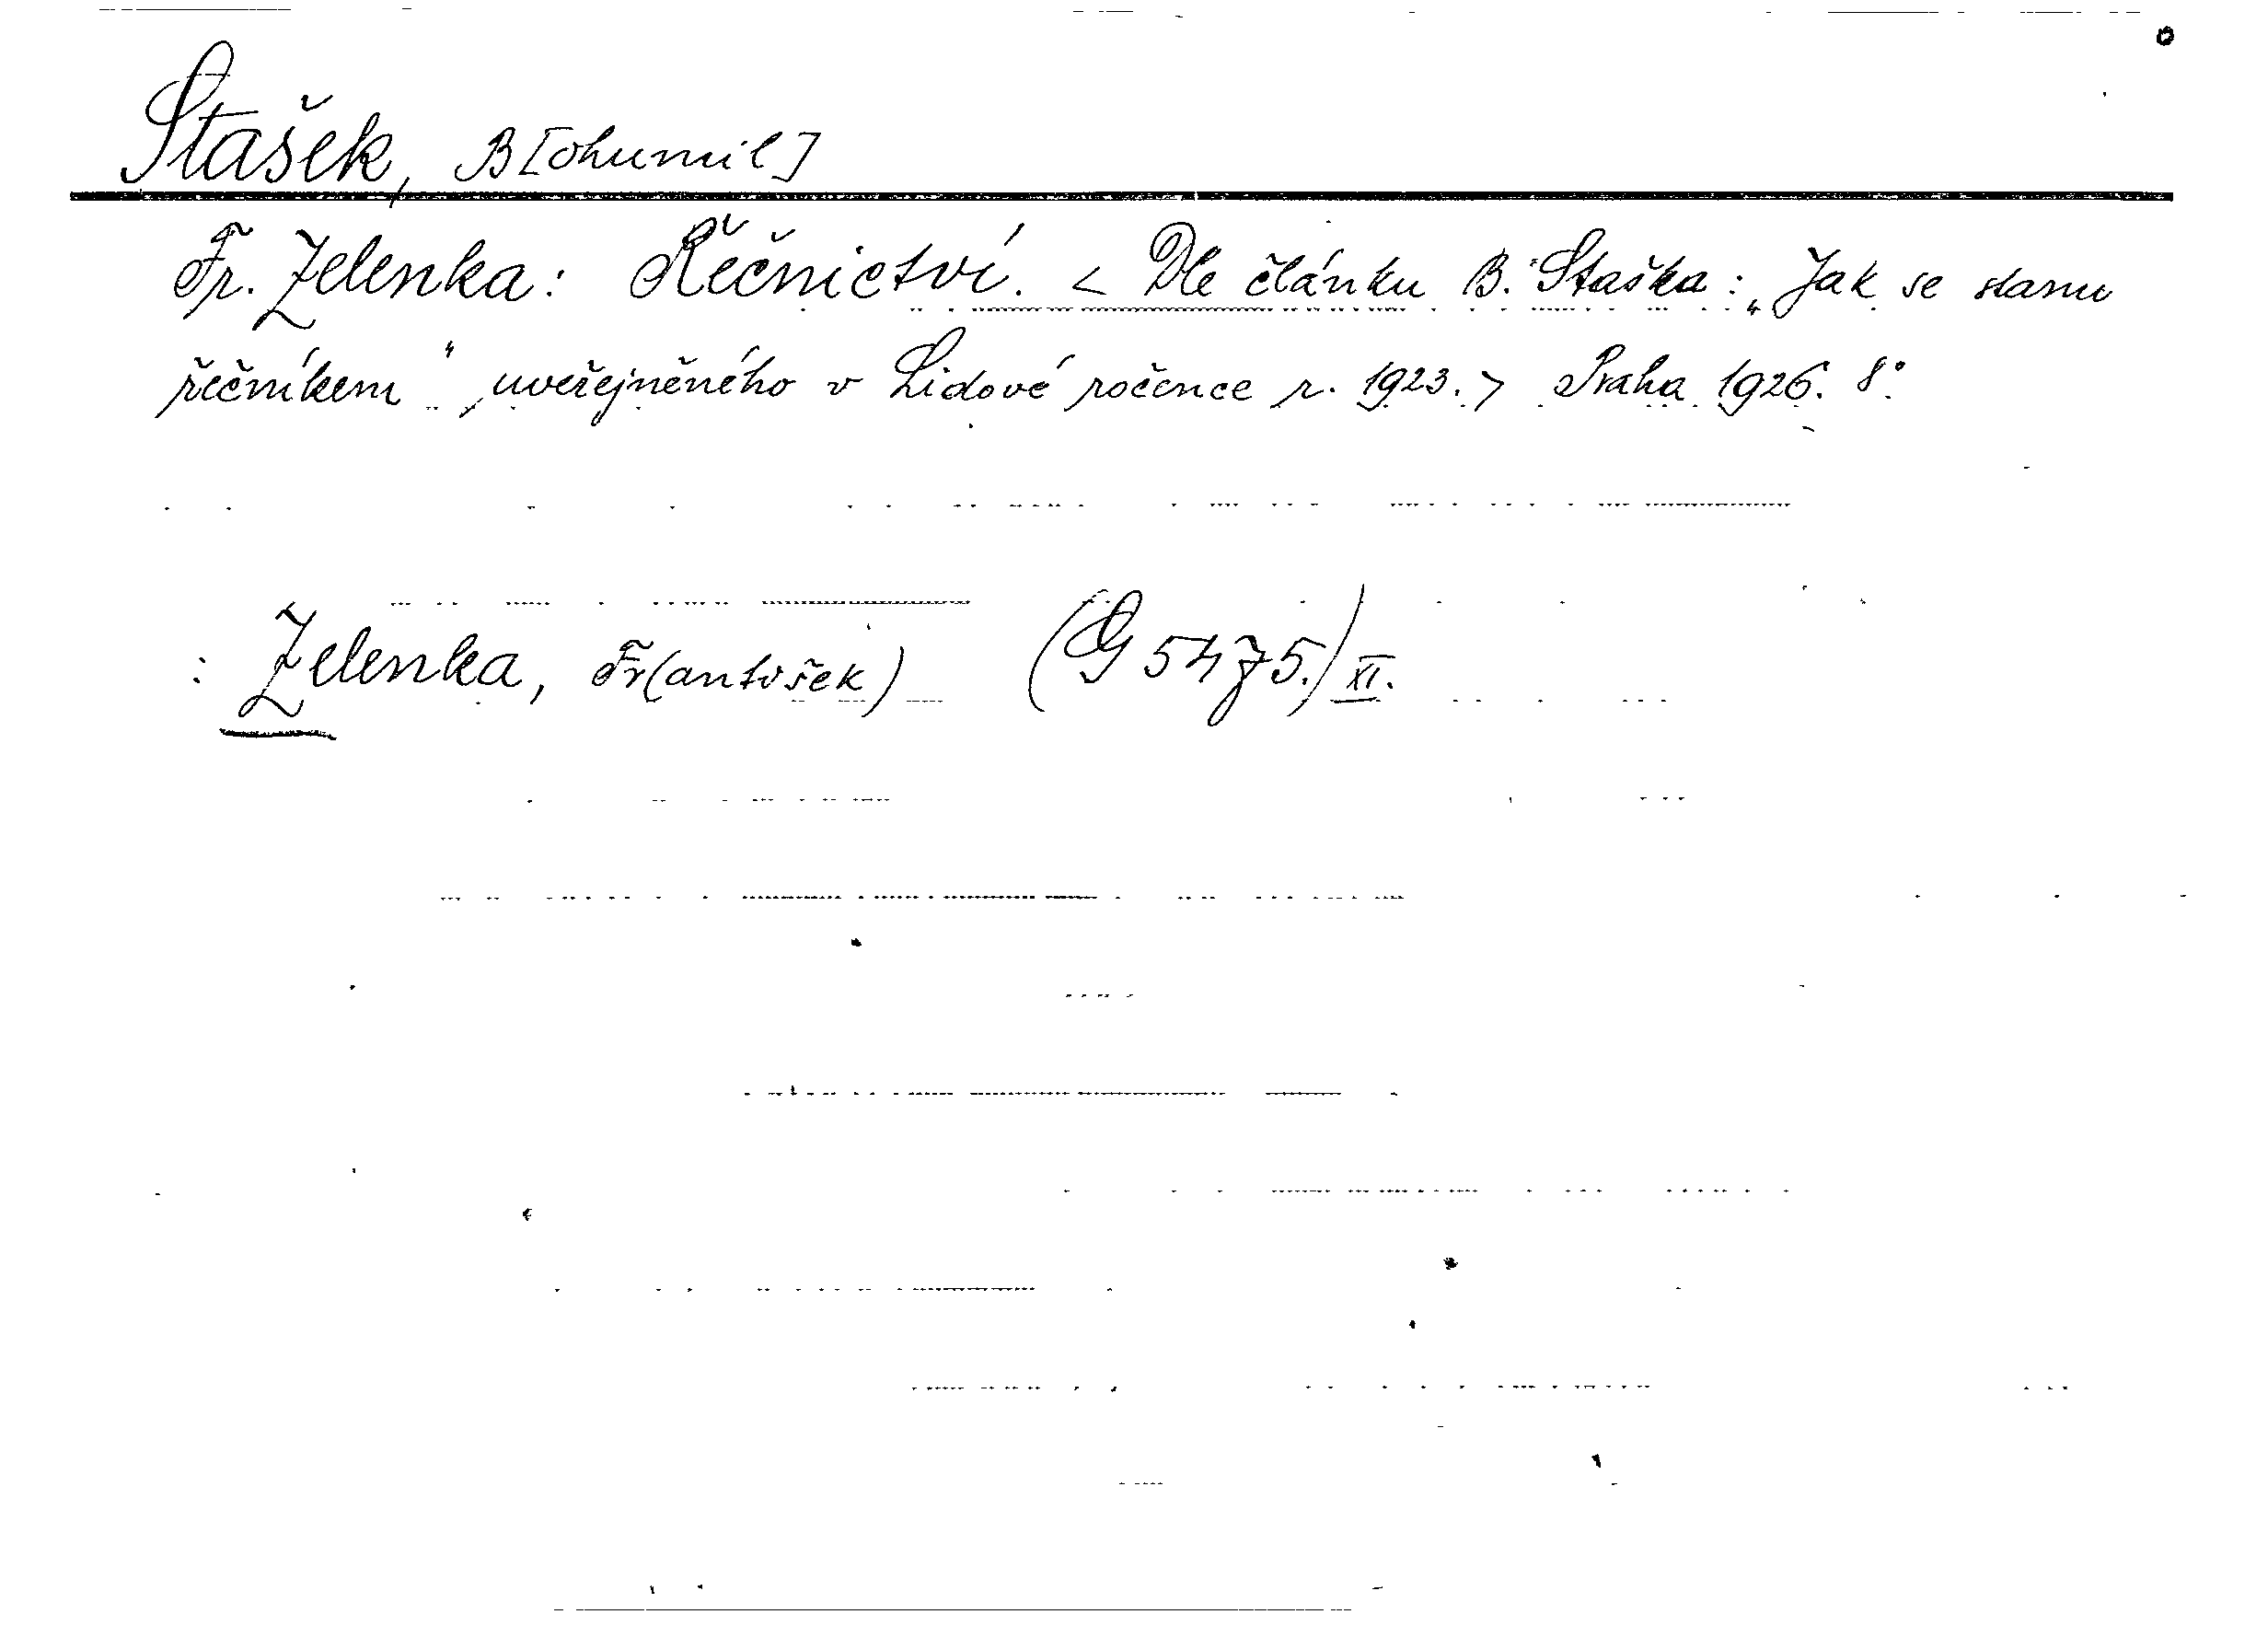 Stašek, B[ohumil]
Fr. Zelenka: Řečnictví. < Dle článku B. Staška: „Jak se stanu
řečníkem“, uveřejněného v Lidové ročence r. 1923. > Praha 1926. 8°.
: Zelenka, Fr(antišek) (G 5475.) XI.